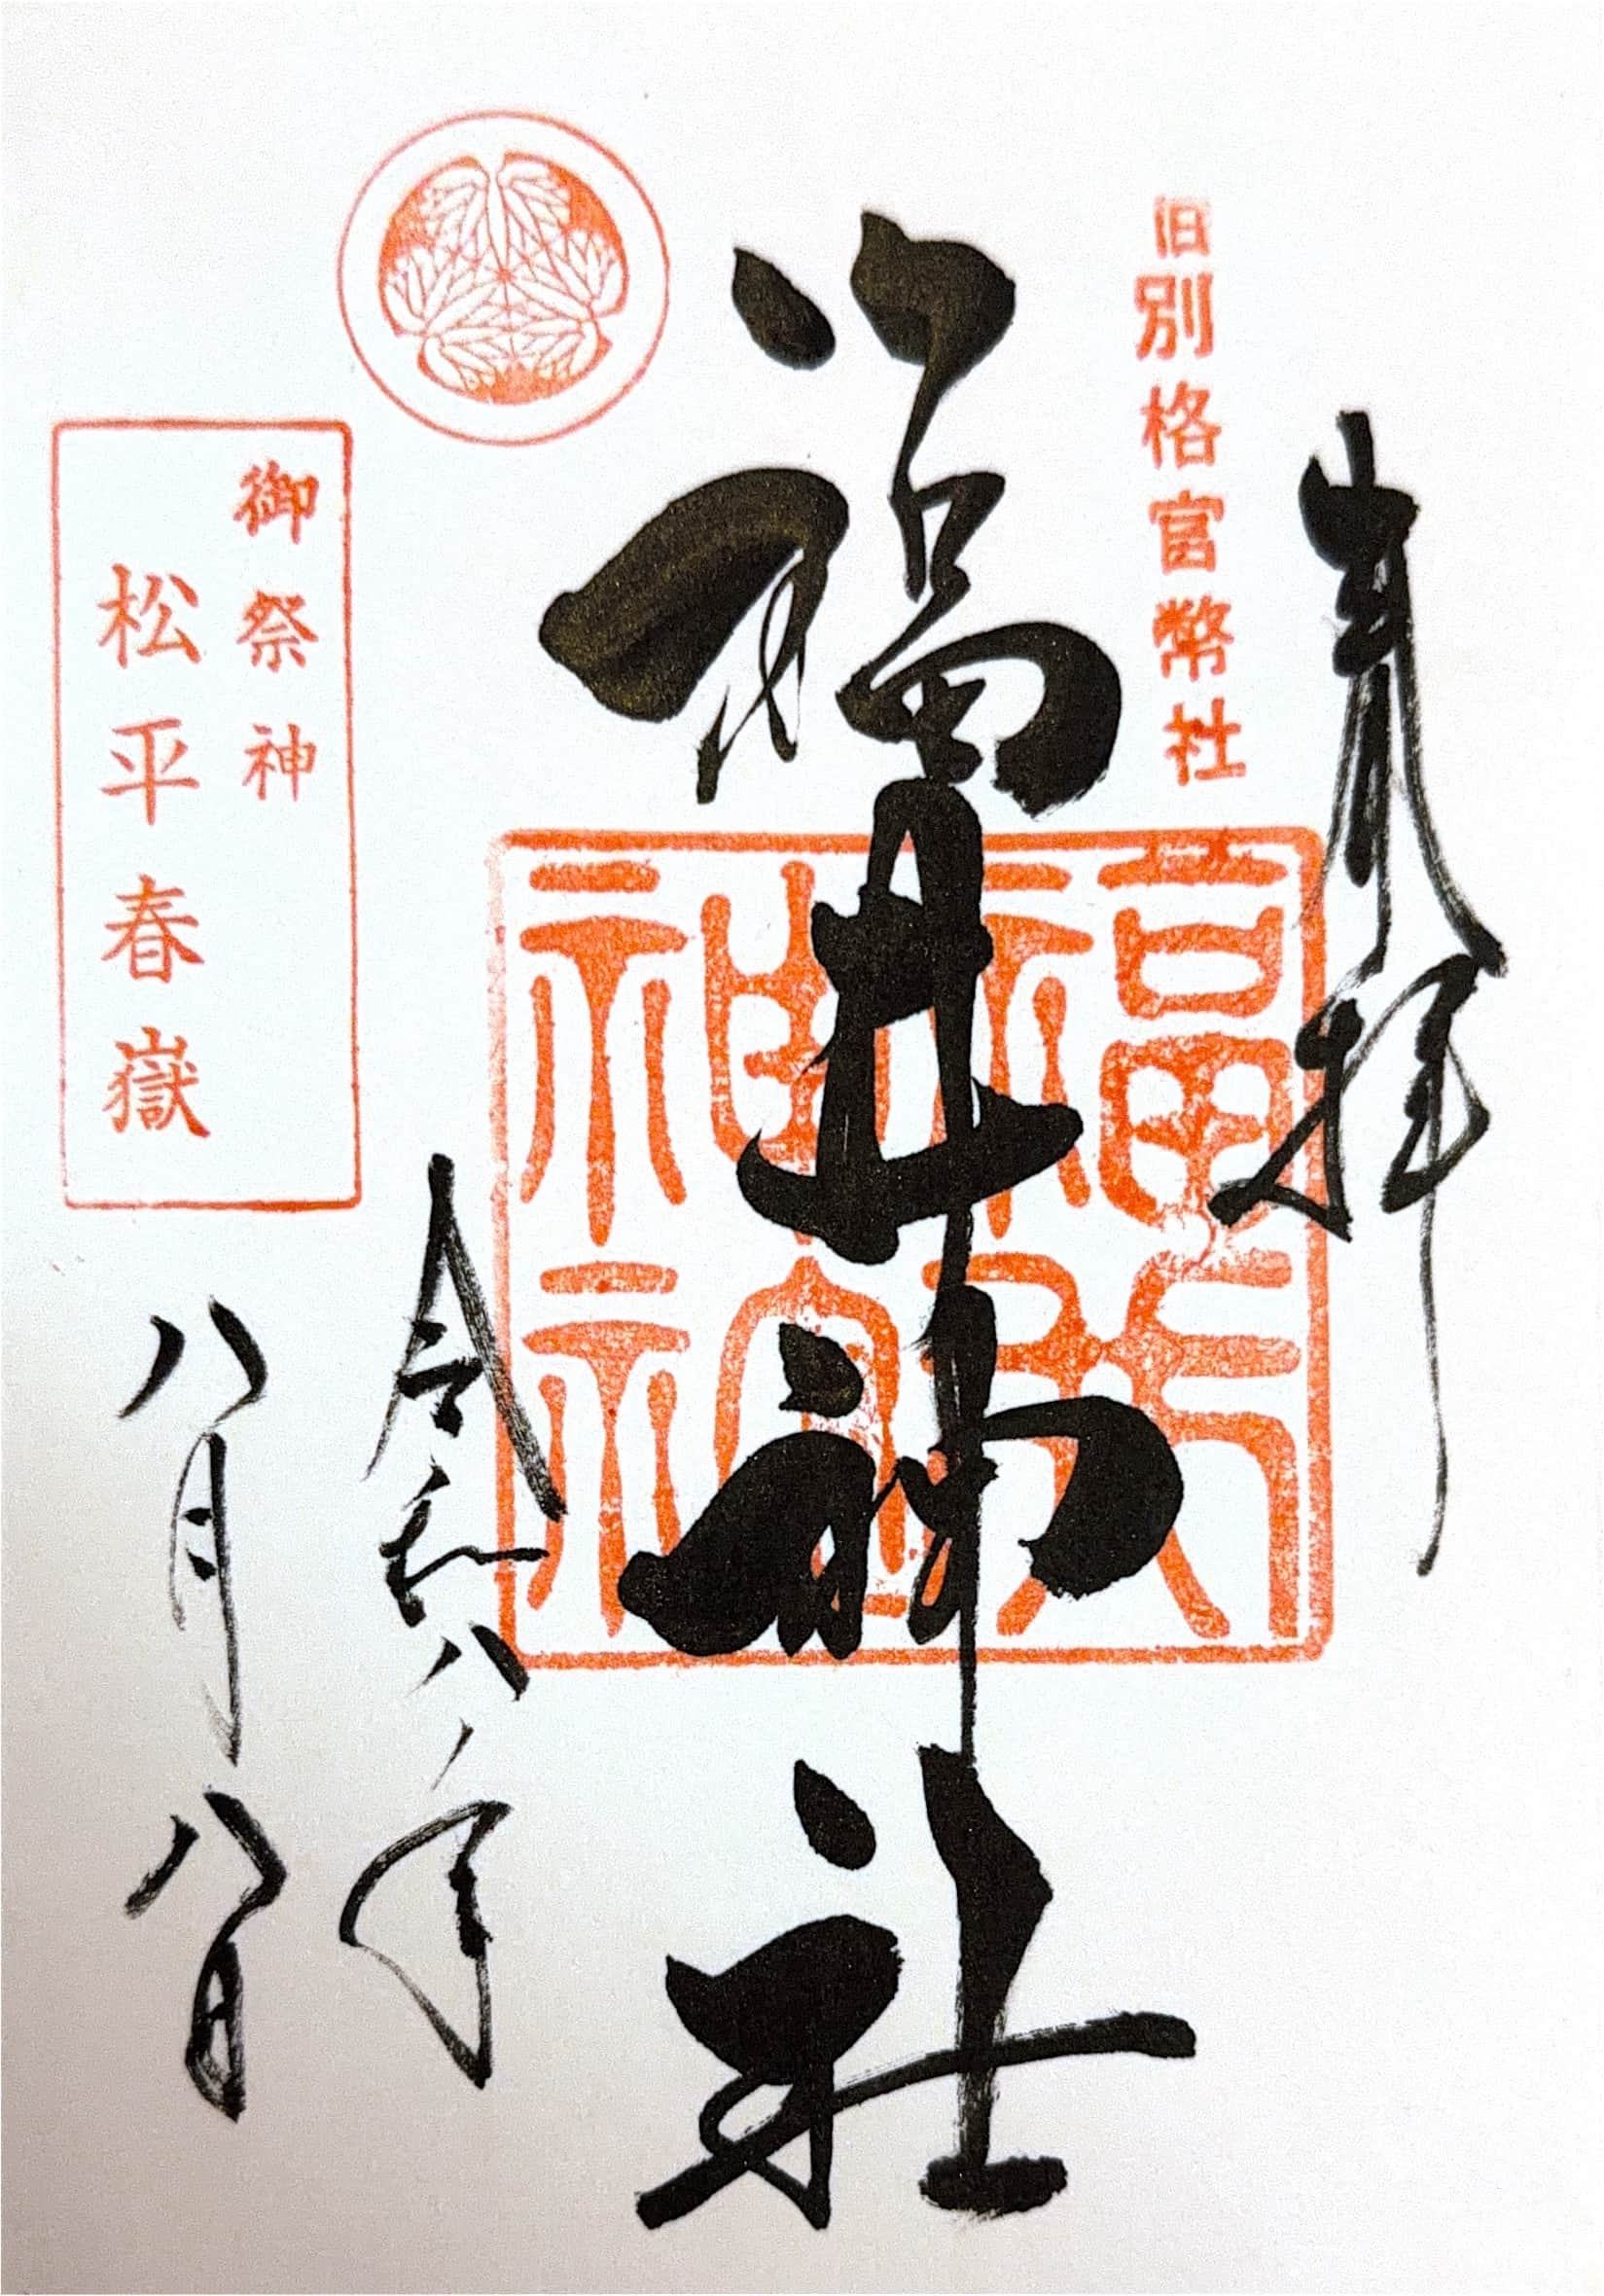 奉拝
旧別格官幣社
福井神社
令和八年
八月八日
御祭神
松平春嶽